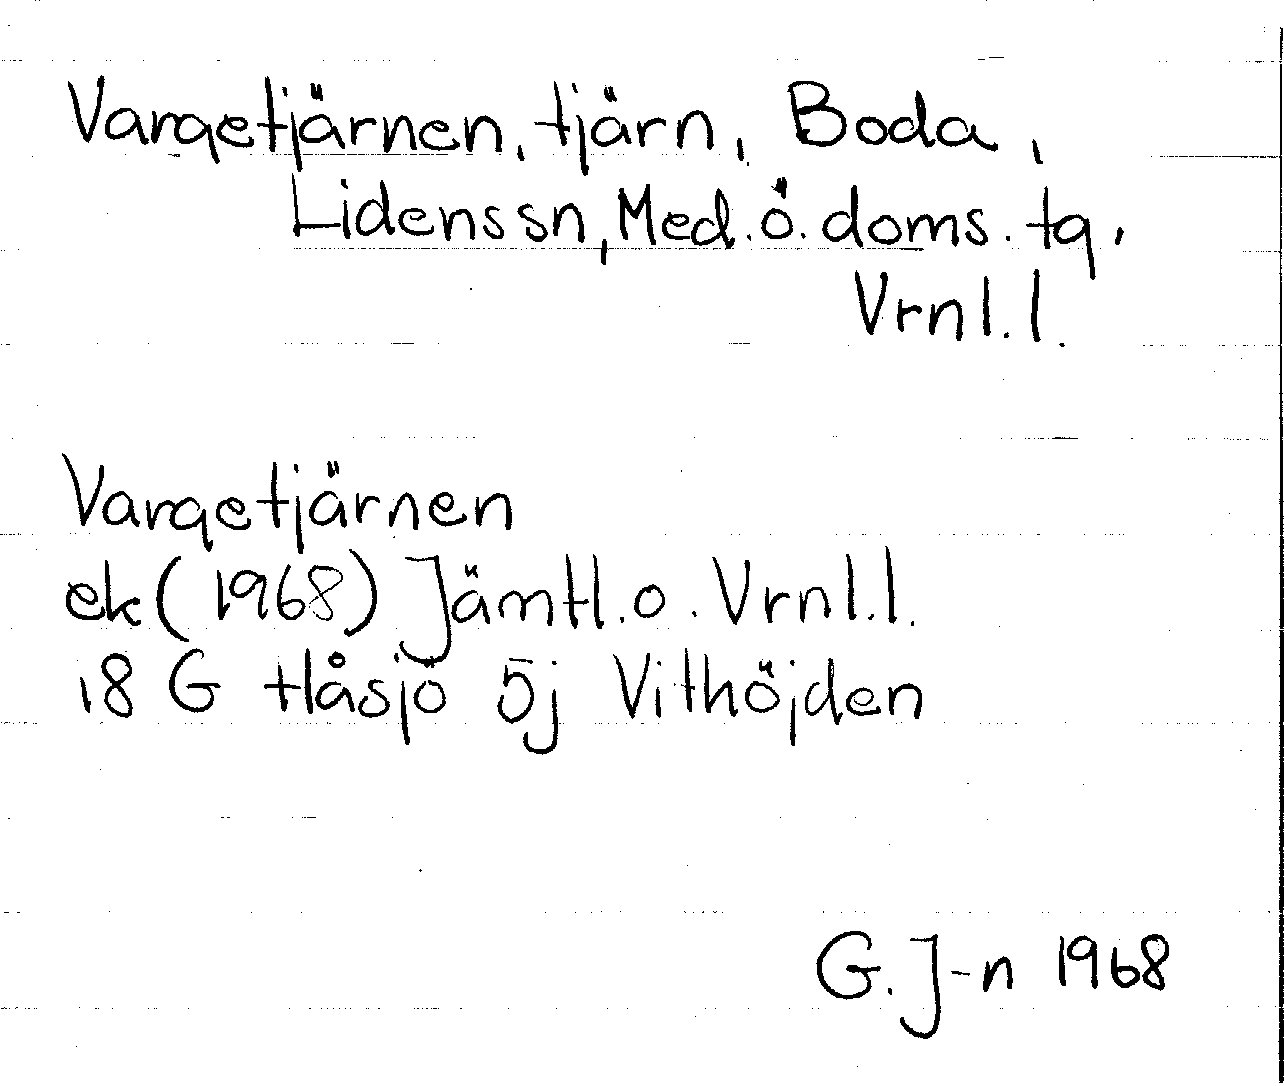 Vargetjärnen, tjärn, Boda,
Lidens sn, Med. ö. doms. tg,
Vrnl. l.
Vargetjärnen
ek (1968) Jämtl. o. Vrnl. l.
18 G Håsjö 5j Vithöjden
G. J-n 1968